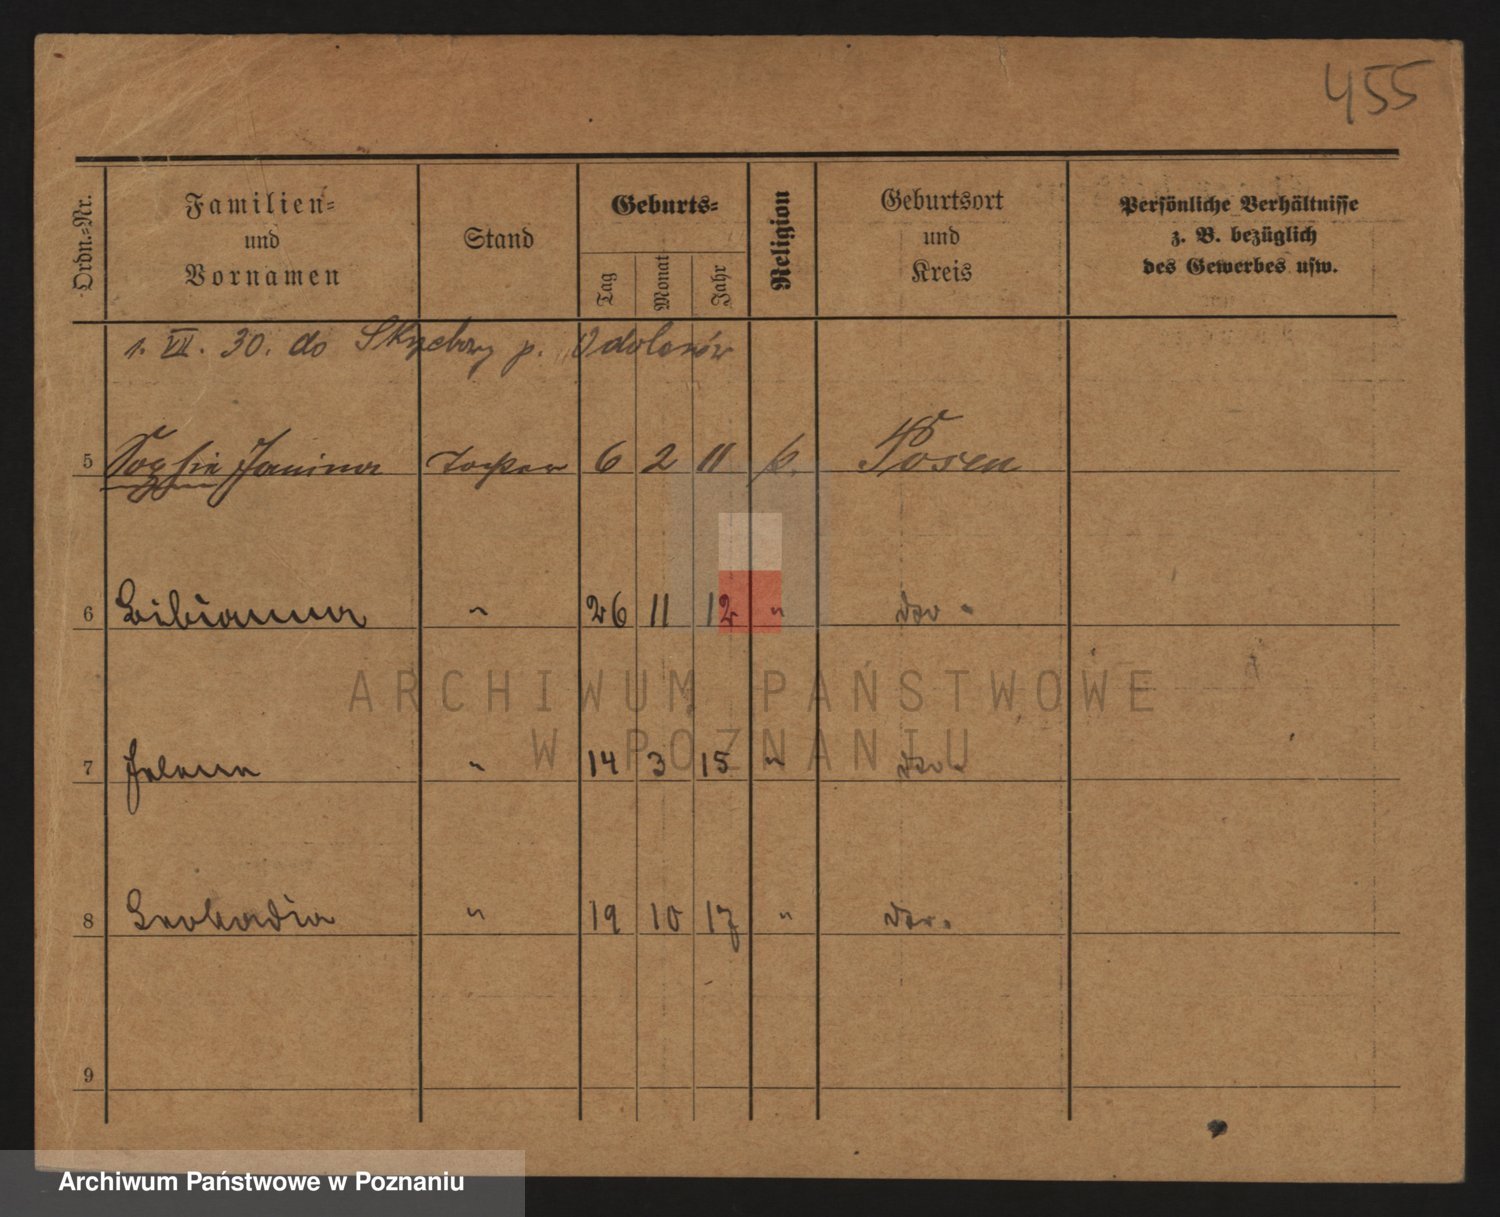 455
Ordn.-Nr.
Familien-
und
Vornamen
Stand
Geburts-
Tag
Monat
Jahr
Religion
Geburtsort
und
Kreis
Persönliche Verhältnisse
z. B. bezüglich
des Gewerbes usw.
1. VII. 30. do p.
5 Sophie Janina Tochter 6 2 11 k. Posen
6 Bibianna " 26 11 12 "
7 Helena " 14 3 15 "
8 Leokadia " 19 10 17 "
9
ARCHIWUM PAŃSTWOWE
W POZNANIU
Archiwum Państwowe w Poznaniu